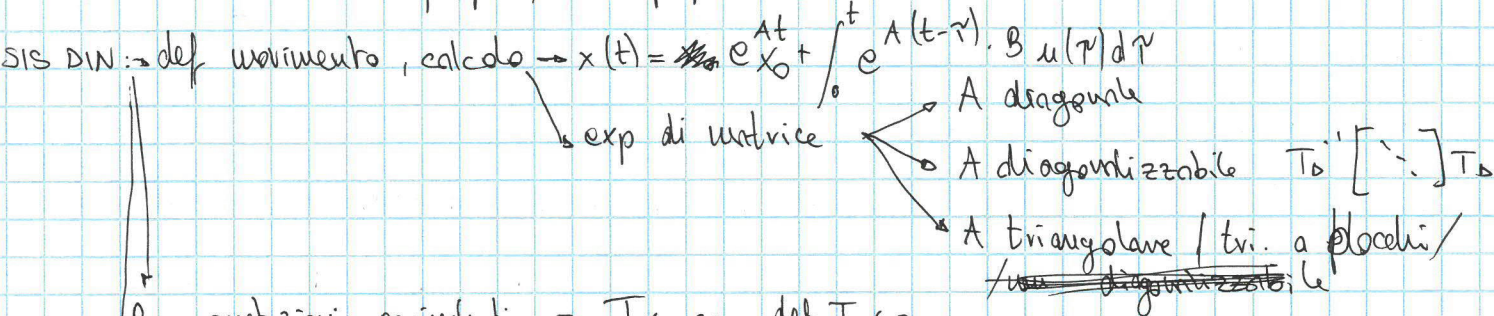 SIS DIN :→ def movimento, calcolo → x(t) = e^{At} x_0 + ∫_0^t e^{A(t-τ)} · B u(τ) dτ
exp di matrice
A diagonale
A diagonalizzabile T_D^{-1} [⋱] T_D
A triangolare / tri. a blocchi /